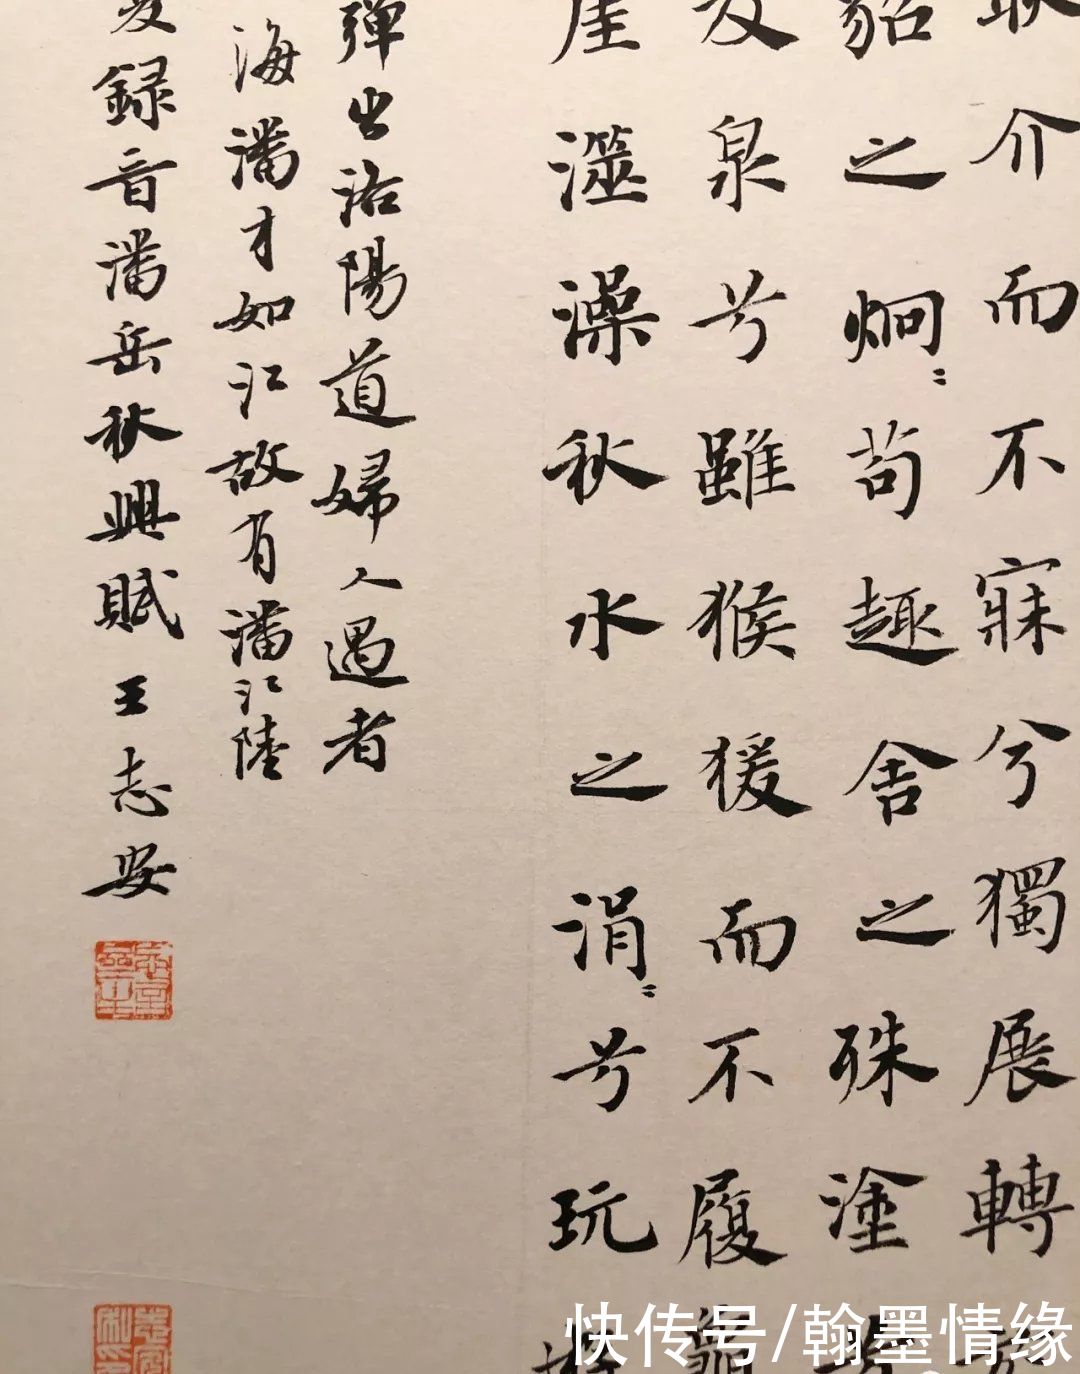 介而不寐兮獨展轉
貂之炯〻苟趣舍之殊塗
及泉兮雖猴猨而不履龜
崖澨澡秋水之涓〻兮玩
彈出洛陽道婦人遇者
海潘才如江故有潘江陸
録音潘岳秋興賦王志安
快传号/翰墨情缘